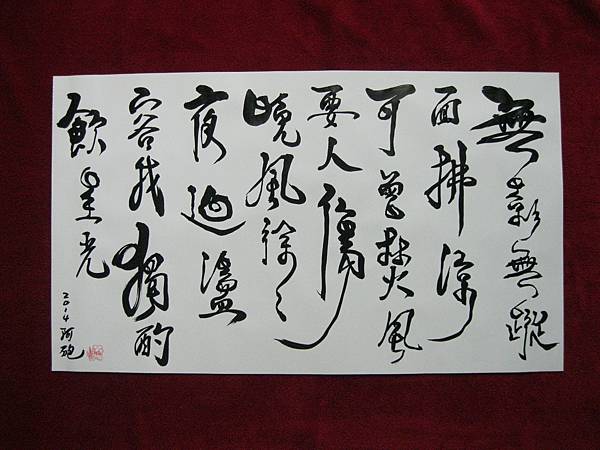 無影無蹤
面拂涼
可曾焚風
要人傷
曉風徐々
夜迴盪
容我獨酌
飲星光
2014 阿砲